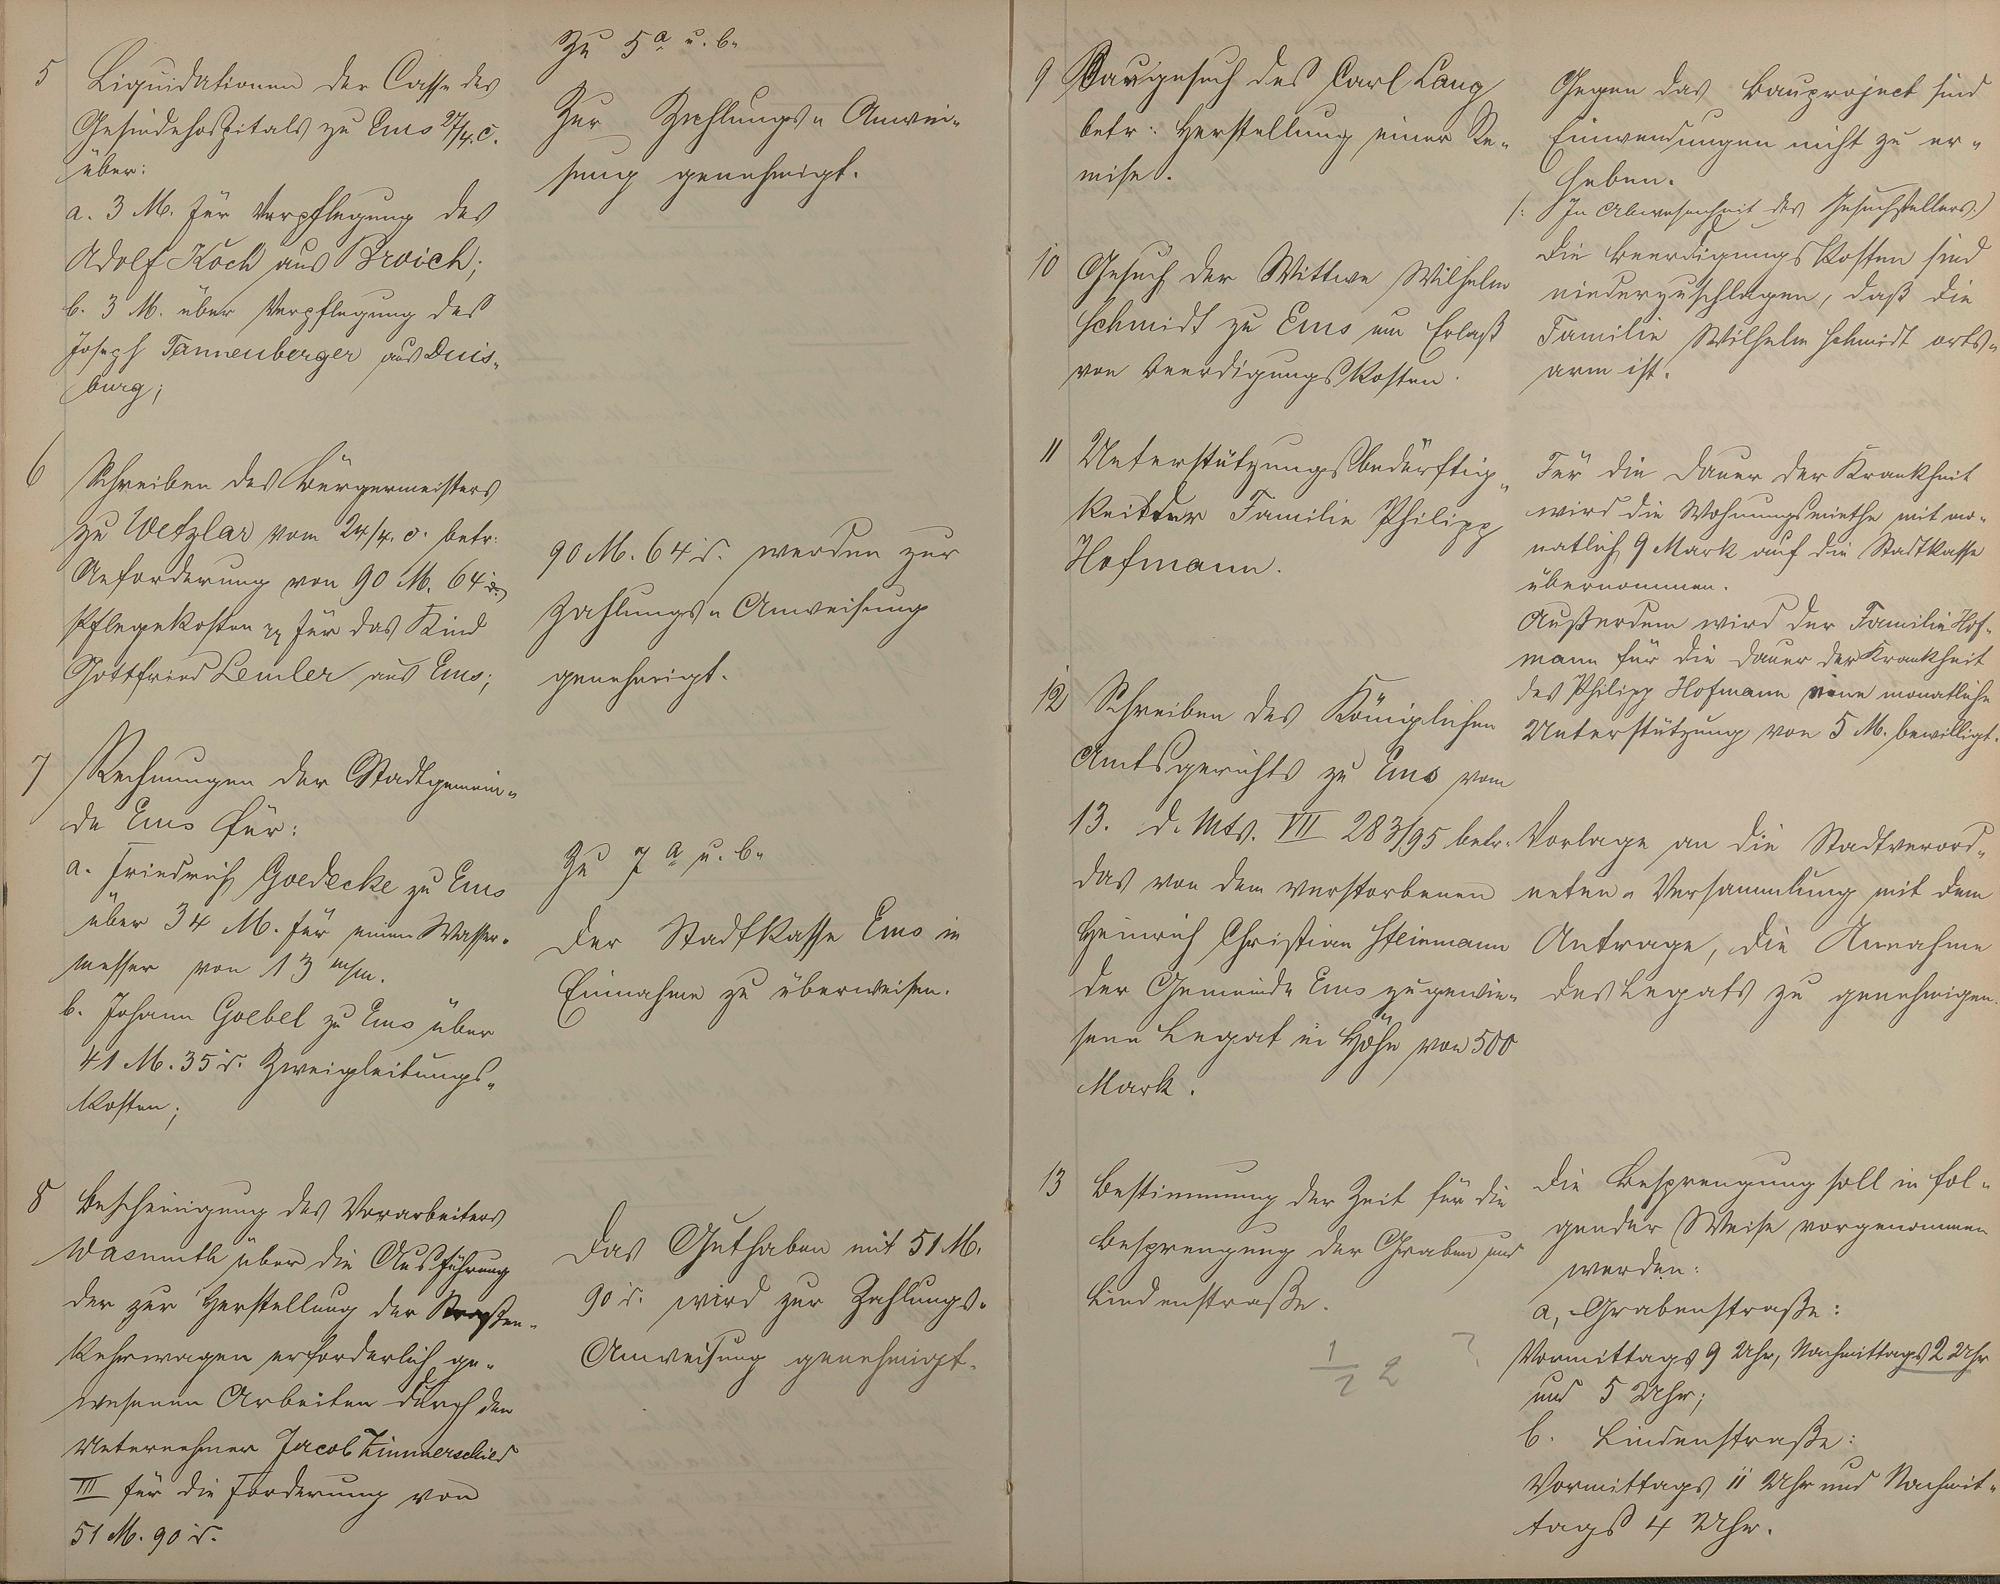 5 Liquidationen der Casse des
Gesindehospitals zu Ems 27/4. c.
über:
a. 3 M. für Verpflegung des
Adolf Koch aus Broich;
b. 3 M. über Verpflegung des
Joseph Tannenberger aus Duis-
burg;
Zu 5 a u. b.
Zur Zahlungs- Anwei-
sung genehmigt.
6 Schreiben des Bürgermeisters
zu Wetzlar vom 24/4. c. betr.
Anforderung von 90 M. 64 d.
Pflegekosten pp für das Kind
Gottfried Lemler aus Ems;
90 M. 64 d. werden zur
Zahlungs- Anweisung
genehmigt.
7 Rechnungen der Stadtgemein-
de Ems für:
a. Friedrich Goedecke zu Ems
über 34 M. für einen Wasser-
messer von 13 m/m.
b. Johann Goebel zu Ems über
41 M. 35 d. Zweigleitungs-
kosten;
Zu 7 a u. b.
Der Stadtkasse Ems in
Einnahme zu überweisen.
8 Bescheinigung des Vorarbeiters
Wasmuth über die Ausführung
der zur Herstellung der Straßen-
kehrwagen erforderlich ge-
wesenen Arbeiten durch den
Unternehmer Jacob Zimmerschied
III für die Forderung von
51 M. 90 d.
Das Guthaben mit 51 M.
90 d. wird zur Zahlungs-
Anweisung genehmigt.
9 Baugesuch des Carl Lang
betr: Herstellung einer Re-
mise.
Gegen das Bauproject sind
Einwendungen nicht zu er-
heben.
/: In Abwesenheit des Gesuchstellers :/
10 Gesuch der Wittwe Wilhelm
Schmidt zu Ems um Erlaß
von Beerdigungskosten.
Die Beerdigungskosten sind
niederzuschlagen, daß die
Familie Wilhelm Schmidt orts-
arm ist.
11 Unterstützungsbedürftig-
keit der Familie Philipp
Hofmann.
Für die Dauer der Krankheit
wird die Wohnungsmiethe mit mo-
natlich 9 Mark auf die Stadtkasse
übernommen.
Außerdem wird der Familie Hof-
mann für die Dauer der Krankheit
des Philipp Hofmann eine monatliche
Unterstützung von 5 M. bewilligt.
12 Schreiben des Königlichen
Amtsgerichts zu Ems vom
13. d. Mts. VII 283/95 betr.
das von dem verstorbenen
Heinrich Christian Steinmann
der Gemeinde Ems zugewie-
sene Legat in Höhe von 500
Mark.
Vorlage an die Stadtverord-
neten- Versammlung mit dem
Antrage, die Annahme
des Legats zu genehmigen.
13 Bestimmung der Zeit für die
Besprengung der Graben und
Lindenstraße.
1/2 2
Die Besprengung soll in fol-
gender Weise vorgenommen
werden:
a, Grabenstraße:
Vormittags 9 Uhr, Nachmittags 2 Uhr
und 5 Uhr;
b. Lindenstraße:
Vormittags 11 Uhr und Nachmit-
tags 4 Uhr.